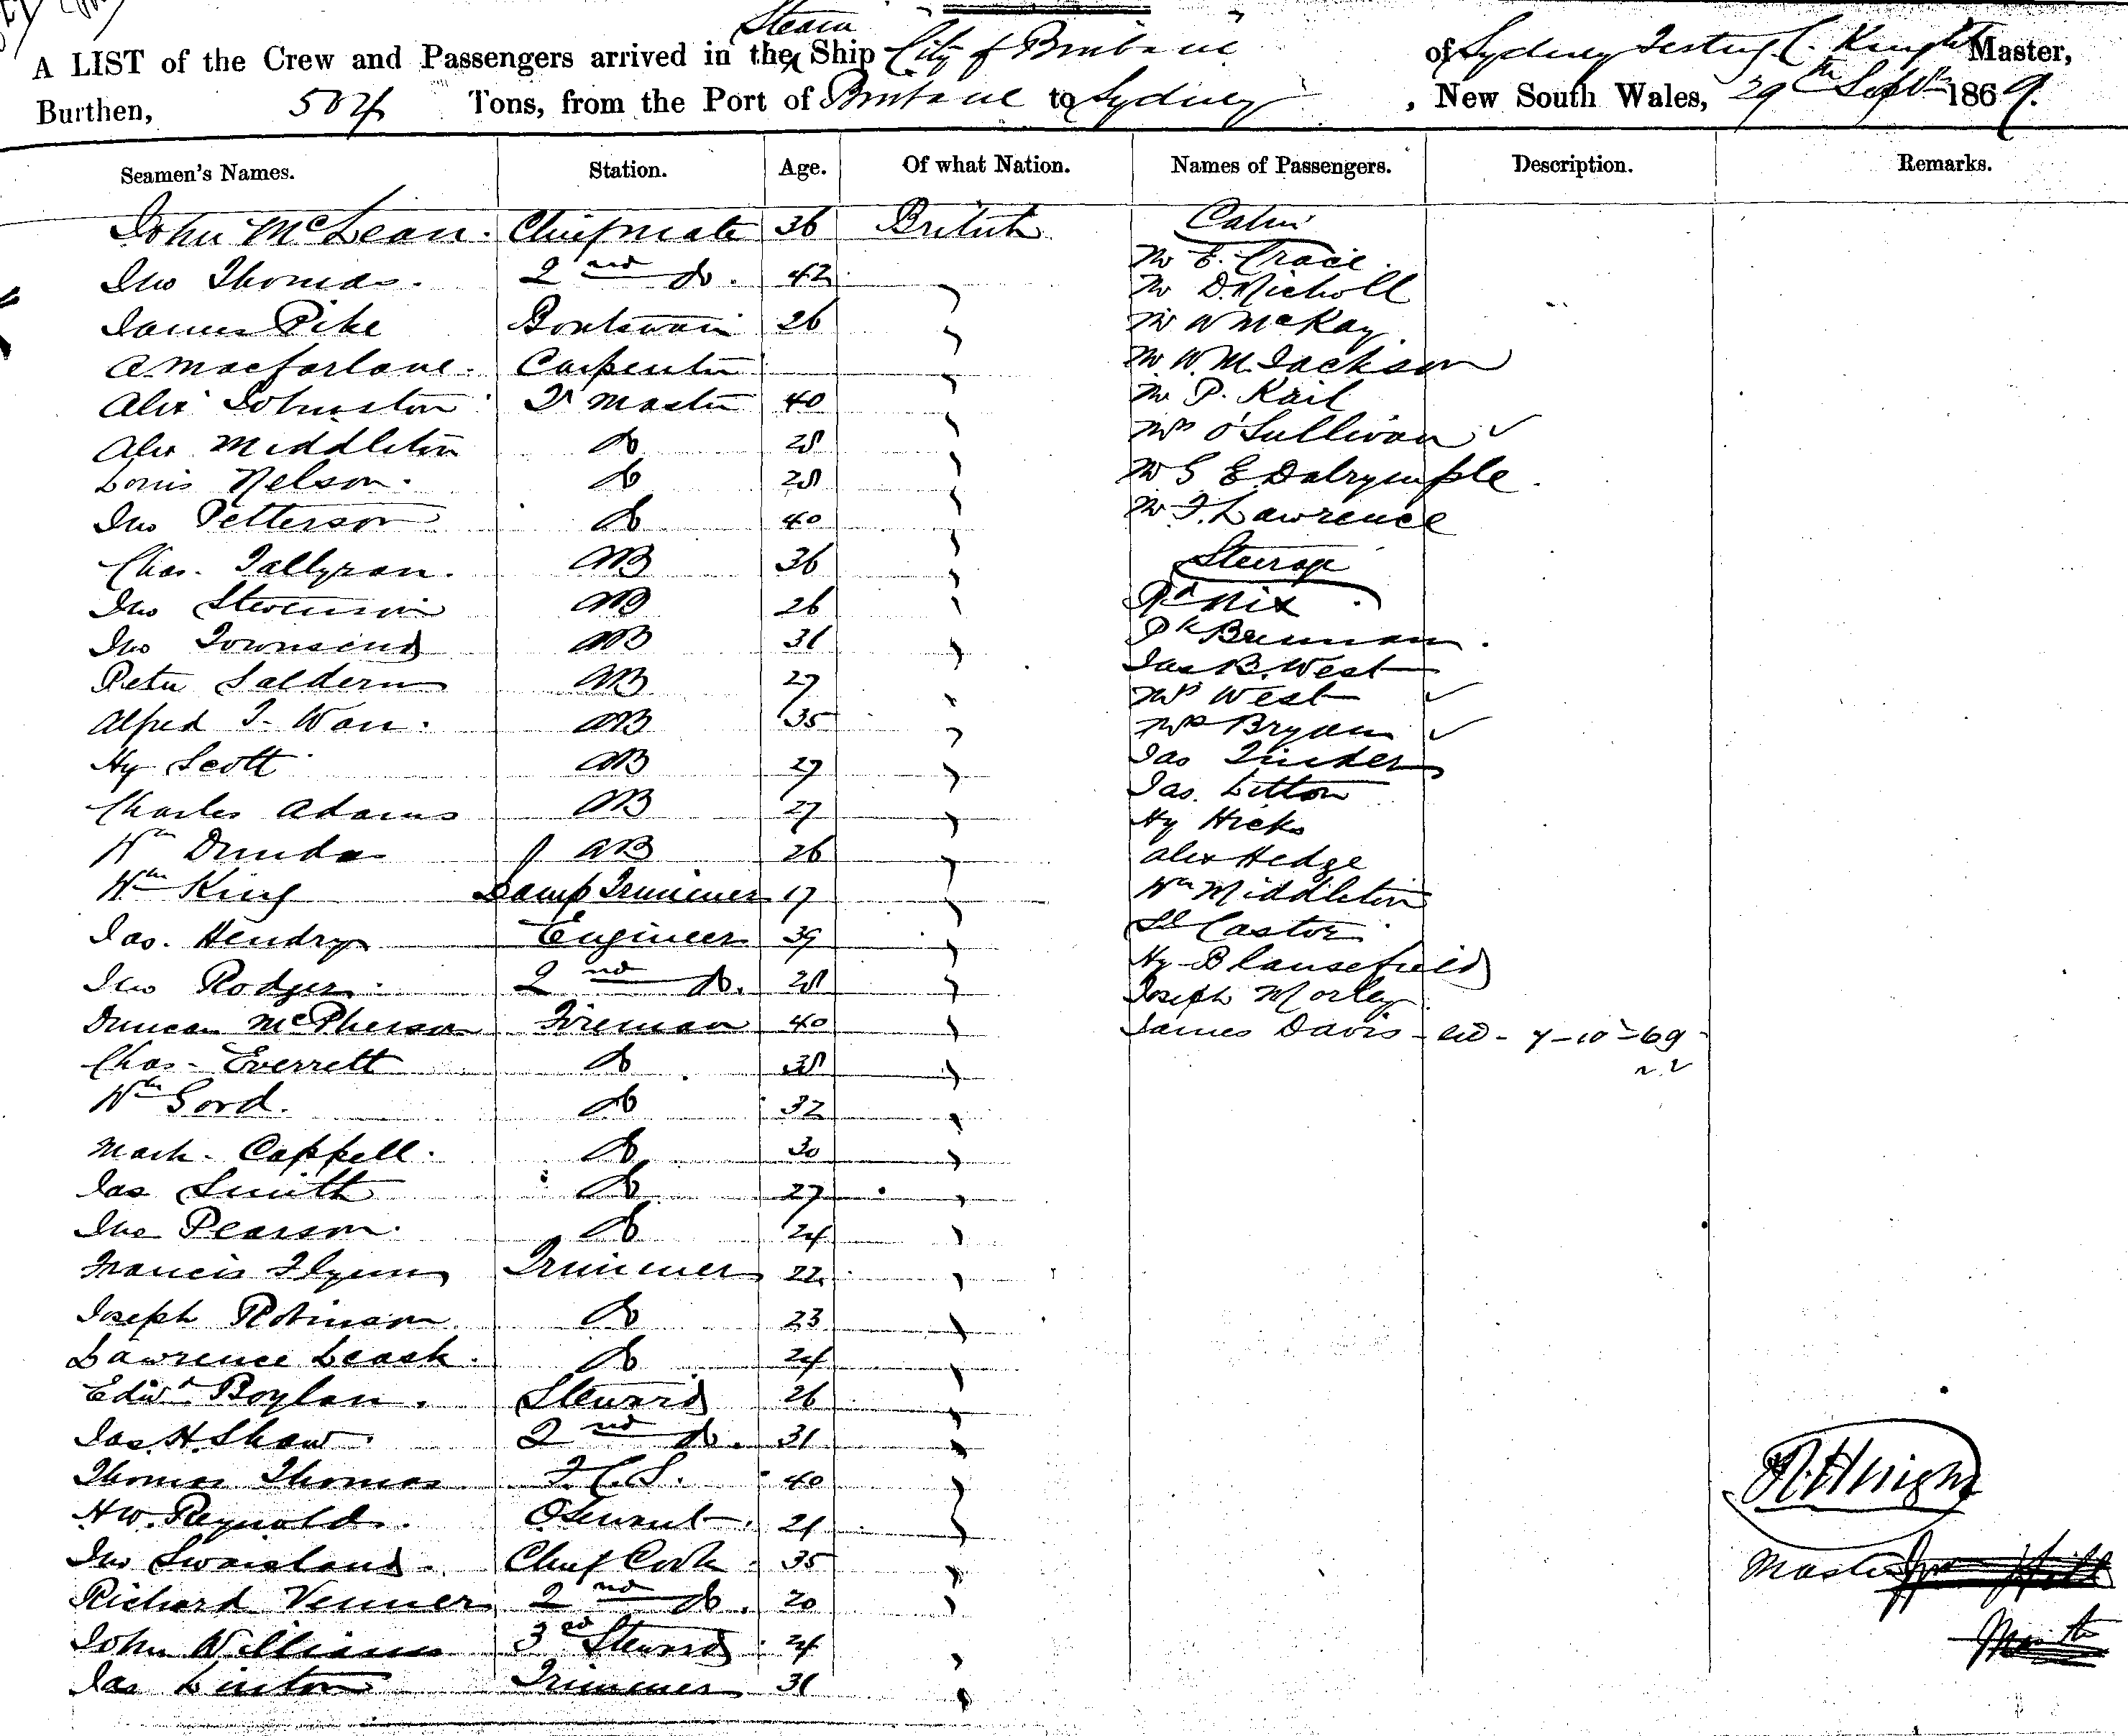 Steam
A LIST of the Crew and Passengers arrived in the Ship City of Brisbane of Sydney Knight Master,
Burthen, 504 Tons, from the Port of Brisbane to Sydney, New South Wales, 29th Septr 1869.
Seamen's Names. Station. Age. Of what Nation. Names of Passengers. Description. Remarks.
John McLean. Chief mate 36 British Cabin
Jno Thomas. 2nd do. 42 " Mr E. Gracie.
Mr D. Nicholl
James Pike Boatswain 26 " Mr W McKay
A. Macfarlane. Carpenter " Mr W. M. Jackson
Alex Johnston Qr Master 40 " Mr P. Kail
Alex Middleton do 28 " Mrs O'Sullivan ✓
Louis Nelson. do 28 " Mr G E Dalrymple.
Jno Petterson do 40 " Mr F. Lawrence
Chas. Tallyran. AB 36 " Steerage
Jno Stevenson AB 26 " Rd Nix
Jno Townsend AB 31 " Pk Brennan.
Peter Saldern AB 27 " Jas B. West
Mrs West ✓
Alfred T. Warr. AB 35 " Mrs Bryan ✓
Hy Scott AB 27 " Jas Tinder
Jas. Litton
Charles Adams AB 27 " Hy Hicks
Wm Dundas AB 26 " Alex Hedge
Wm King Lamp Trimmer 17 " Wm Middleton
Jas. Hendry Engineer 39 " Castor
Hy Blansefield
Jno Rodger. 2nd do. 28 " Joseph Morley
Duncan McPherson Fireman 40 " James Davis - - 7-10-69
Chas. Everrett do 38 "
Wm Gord. do 32 "
Mark. Cappell. do 30 "
Jas Smith do 27 "
Jno Pearson. do 24 "
Francis Flynn Trimmer 22 "
Joseph Robinson. do 23 "
Lawrence Leask. do 24 "
Edwd Boylan. Steward 26 "
Jas. H. Shaw. 2nd do. 31 "
Thomas Thomas F.C.S. 40 "
HW. Reynolds. 21 "
Jno Swaisland. Chief Cook 35 "
Master
Richard Venner 2nd do. 20 "
John Williams 3rd Steward 24 "
Jas Linton Trimmer 31 "